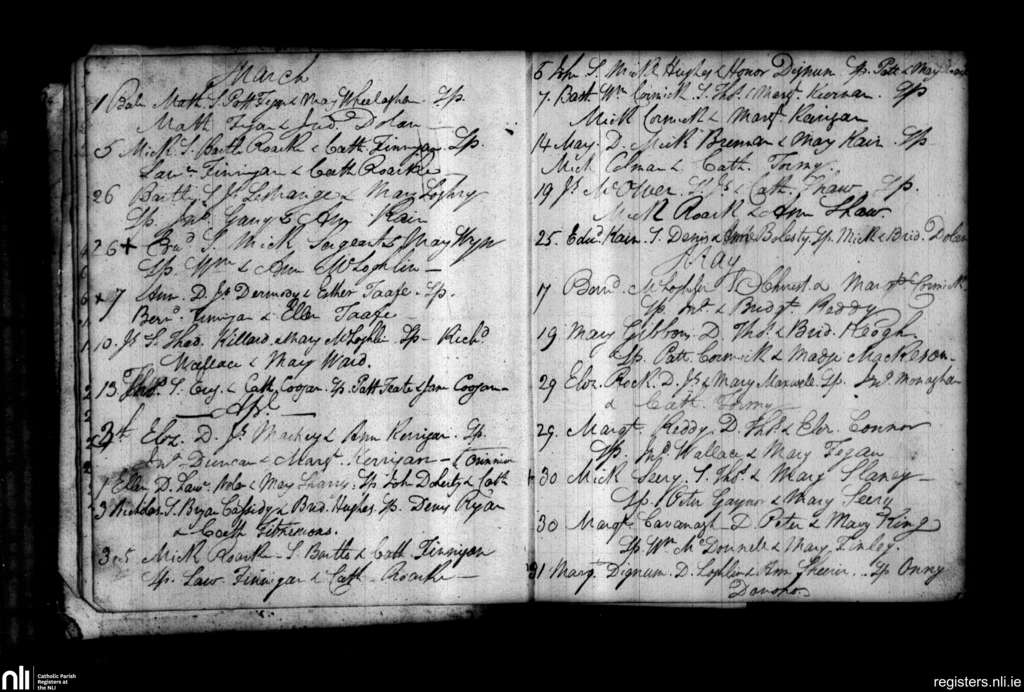 March
1 Math S. Patt Fegan & May Wheelaghan. Sp.
Math Fegan & Jud. Dolan
5 Mick S. Bartle Roarke & Cath Finnigan. Sp.
Law. Finnigan & Cath Roarke
26 Bartle S. Js. Lestrange & Mary
Sp. & Ann Kain
26 + S. Mick & May Wyn
Sp. Wm & Ann McLoghlin
7 Ann. D. Js. Dermody & Esther Taafe. Sp.
Bern. Finnigan & Ellen Taafe
10. Js. S. Thos. Killard & Mary McLoghlin Sp. Richd
Wallace & May Ward
13. Thos. S. & Cath Coogan. Sp. Patt & Jam Coogan
Apl
3d Eliz. D. Js. Mackey & Ann Kerrigan. Sp.
Jno. Duncan & Margt. Kerrigan
Ellen D. Law. & May Sp. John Doherty & Cath
3 Nicholas S. Bryan Cassidy & Brid. Hughes. Sp. Denis Ryan
& Cath Fitzsimons.
5 Mick Roarke S. Bartle & Cath Finnigan
Sp. Law Finnigan & Cath Roarke
6 John S. Mick Hughes & Honor Dignum Sp. Patt & May
7. Bart. Wm Cormick S. Thos. & Margt. Keernan. Sp
Mick Cormick & Margt. Karigan
14 Mary. D. Mick Brennan & May Kain. Sp.
Mick Colman & Cath. Tormy
19 Js. McOliver. S. Js & Cath. Shaw. Sp.
Mick Roark & Ann Shaw
25. Edwd. Kain. S. Denis & Bolesty. Sp. Mick & Brid. Dolan
May
17 Bernd. McLoghlin S. Christ. & Margt. Cormick
Sp. Jno. & Bridgt. Reddy
19 Mary Gibbon. D. Thos. & Brid. Keogh
Sp. Patt Cormick & Madge Mackeson
29 Eliz. Rock. D. Js. & Mary Maxwell. Sp. Jno. Monaghan
& Cath. Tormy
29. Margt. Reddy. D. Thos. & Elr. Connor
Sp. Jno. Wallace & Mary Fegan
30 Mick Seery. S. Thos. & Mary Slaney
Sp. Peter Gaynor & Mary Seery
30 Margt. Cavanagh D. Peter & Mary King
Sp. Wm McDonnell & Mary Finley
31 Margt. Dignum. D. Loghlin & Ann Sheerin. Sp Onny
Donoho
nli Catholic Parish
Registers at
the NLI
registers.nli.ie